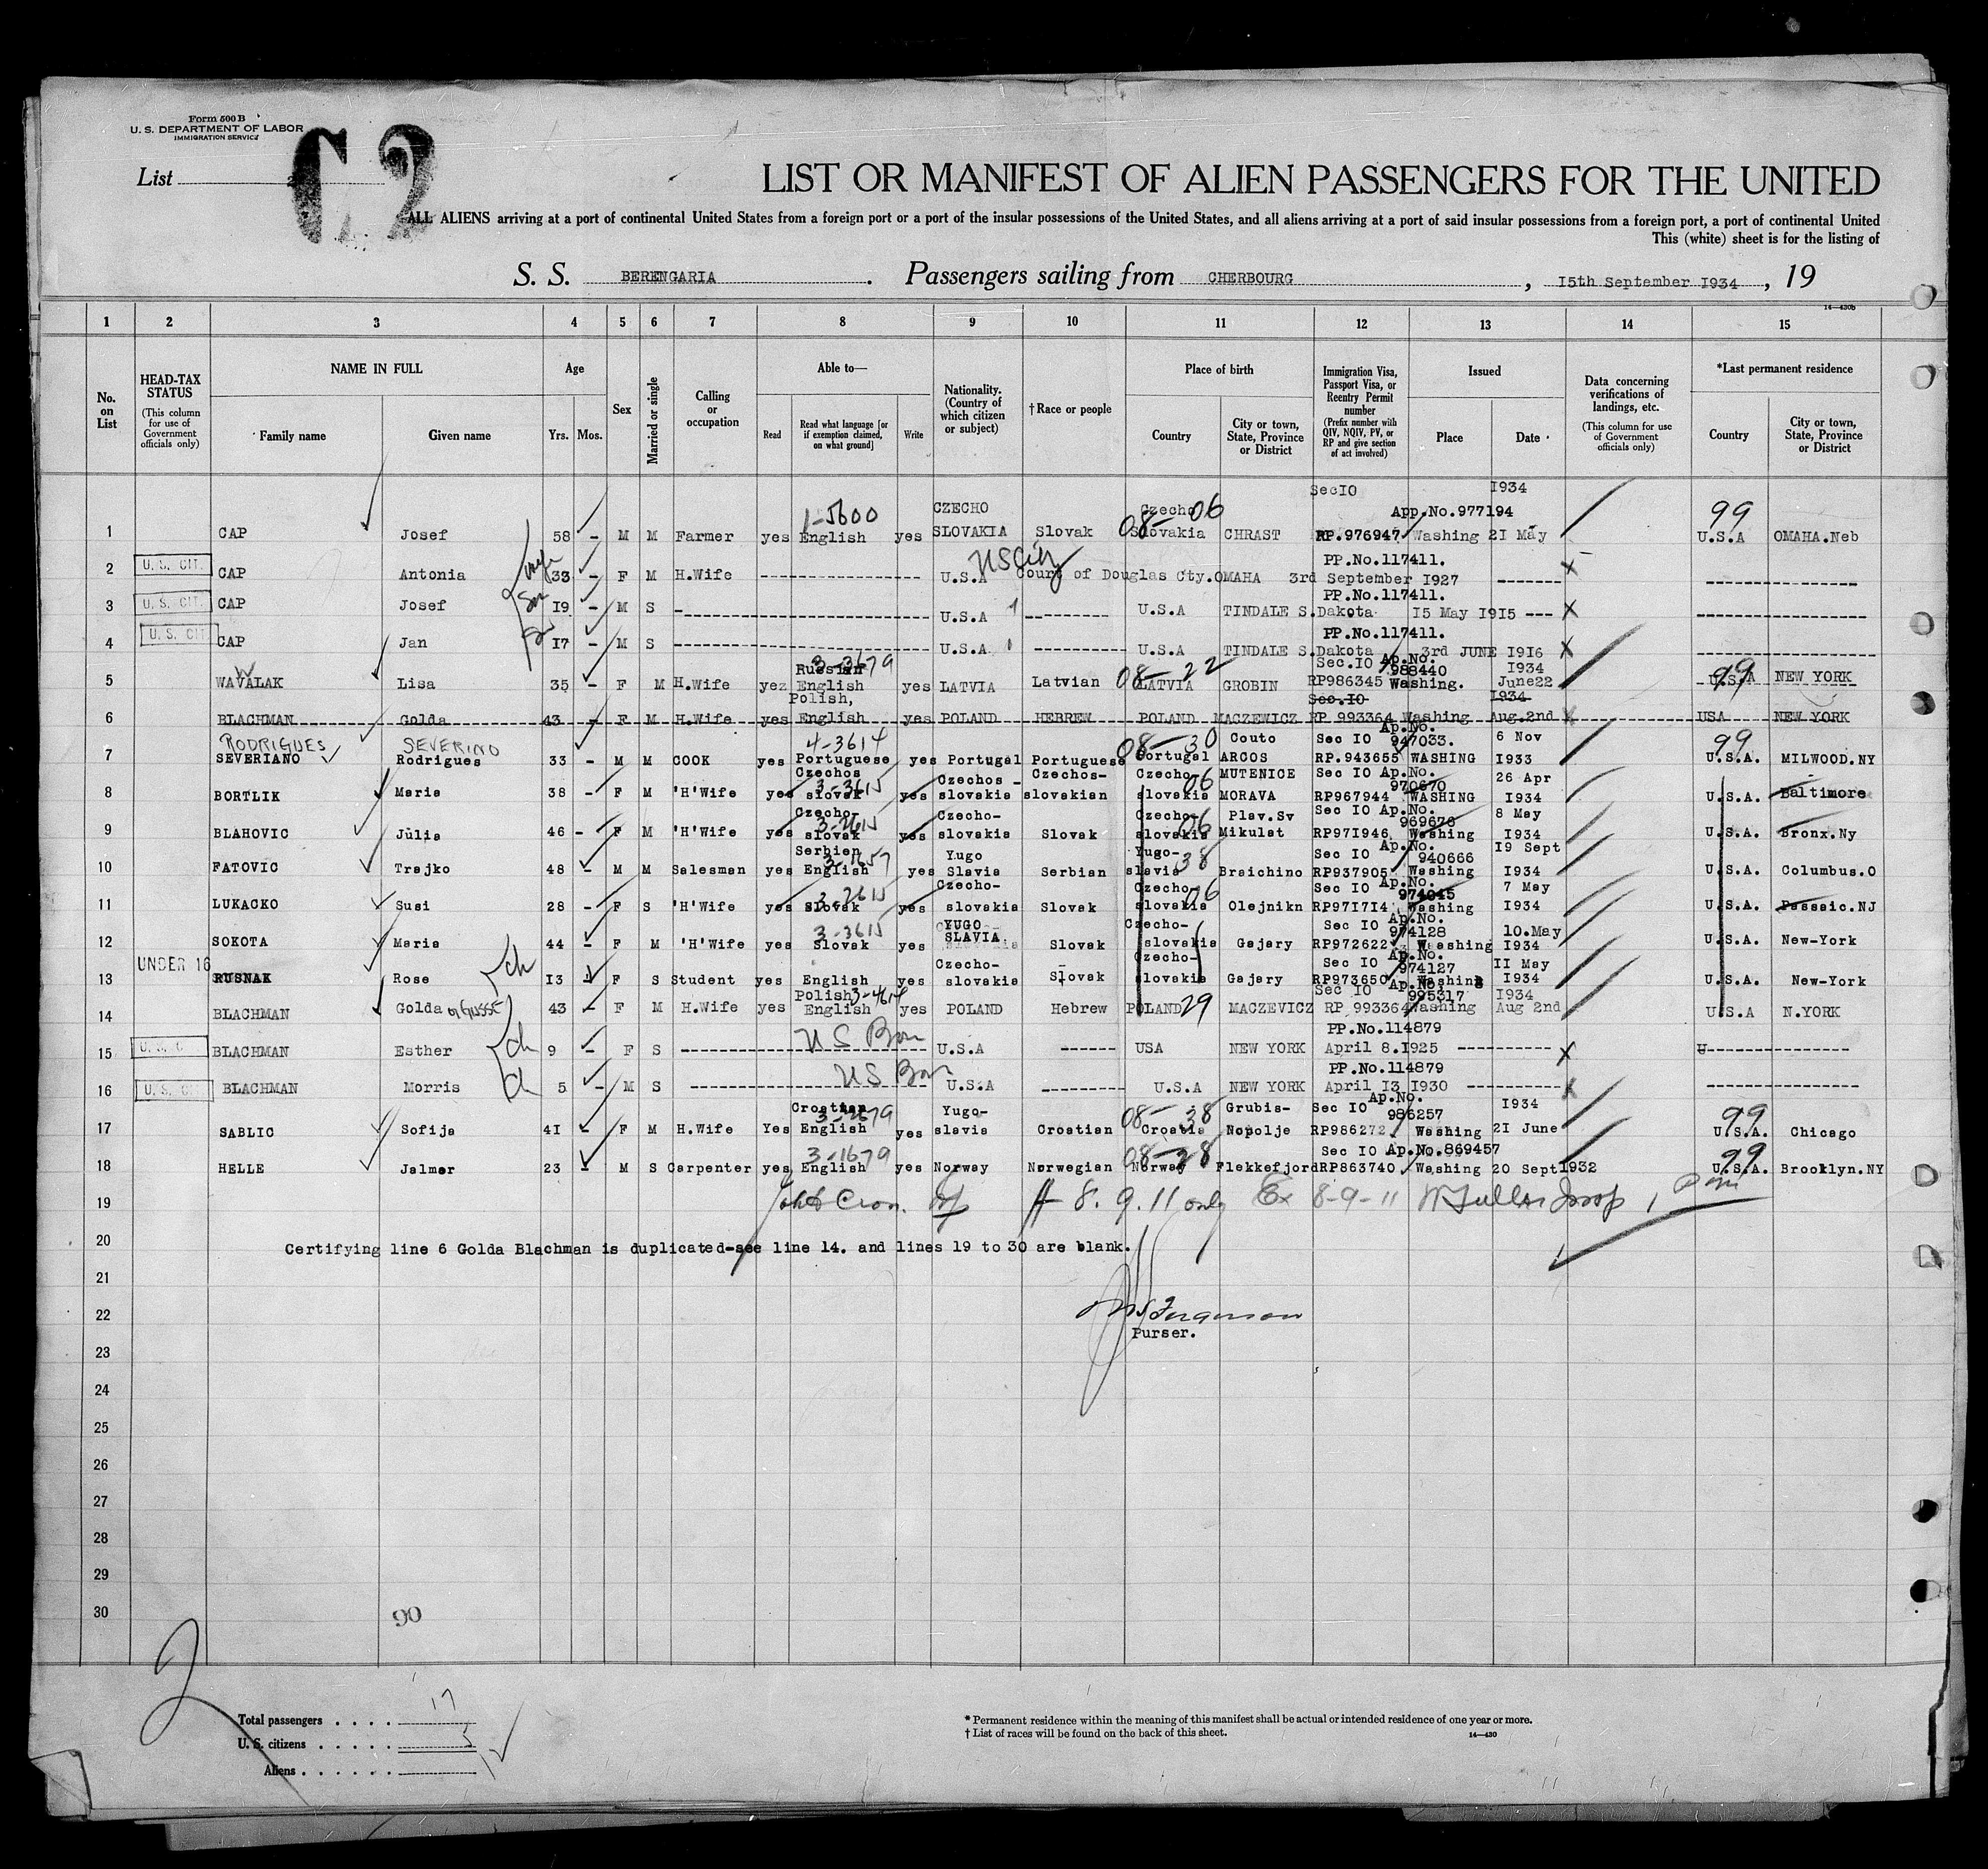 Form 500 B
U. S. DEPARTMENT OF LABOR
IMMIGRATION SERVICE
C 2
List
LIST OR MANIFEST OF ALIEN PASSENGERS FOR THE UNITED
ALL ALIENS arriving at a port of continental United States from a foreign port or a port of the insular possessions of the United States, and all aliens arriving at a port of said insular possessions from a foreign port, a port of continental United
This (white) sheet is for the listing of
S. S. BERENGARIA. Passengers sailing from CHERBOURG, 15th September 1934, 19
14—430B
1 2 3 4 5 6 7 8 9 10 11 12 13 14 15
No. on List
HEAD-TAX STATUS
(This column for use of Government officials only)
NAME IN FULL
Family name Given name
Age
Yrs. Mos.
Sex
Married or single
Calling or occupation
Able to—
Read Read what language [or if exemption claimed, on what ground] Write
Nationality. (Country of which citizen or subject)
† Race or people
Place of birth
Country City or town, State, Province or District
Immigration Visa, Passport Visa, or Reentry Permit number
(Prefix number with QIV, NQIV, PV, or RP and give section of act involved)
Issued
Place Date
Data concerning verifications of landings, etc.
(This column for use of Government officials only)
*Last permanent residence
Country City or town, State, Province or District
Sec10 1934
1-5600 CZECHO Czecho 08-06 App.No.977194 99
1 CAP Josef 58 - M M Farmer yes English yes SLOVAKIA Slovak Slovakia CHRAST RP.976947 Washing 21 May U.S.A OMAHA.Neb
US City PP.No.117411.
2 U. S. CIT. CAP Antonia wife 33 - F M H.Wife U.S.A Court of Douglas Cty.OMAHA 3rd September 1927 X
PP.No.117411.
3 U. S. CIT. CAP Josef Son 19 - M S U.S.A U.S.A TINDALE S.Dakota 15 May 1915 X
PP.No.117411.
4 U. S. CIT. CAP Jan 17 - M S U.S.A U.S.A TINDALE S.Dakota 3rd JUNE 1916 X
3-3679 Russian Sec.10 Ap.No. 988440 1934
5 WAVALAK Lisa 35 - F M H.Wife yez English yes LATVIA Latvian 08-22 LATVIA GROBIN RP986345 Washing. June22 99 U.S.A NEW YORK
Polish, Sec.10 1934
6 BLACHMAN Golda 43 - F M H.Wife yes English yes POLAND HEBREW POLAND MACZEWICZ RP 993364 Washing Aug.2nd X USA NEW YORK
RODRIGUES SEVERINO 4-3614 08-30 Couto Sec 10 Ap.No. 947033. 6 Nov 99
7 SEVERIANO Rodrigues 33 - M M COOK yes Portuguese yes Portugal Portuguese Portugal ARCOS RP.943655 WASHING 1933 U.S.A. MILWOOD.NY
Czechos 3-3615 Czechos- Czechos- Czecho- 06 MUTENICE Sec 10 Ap.No. 970670 26 Apr
8 BORTLIK Maria 38 - F M 'H'Wife yes slovak yes slovakia slovakian slovakia MORAVA RP967944 WASHING 1934 U.S.A. Baltimore
Czecho- 3-2615 Czecho- Czecho- 06 Plav.Sv Sec 10 Ap.No. 969676 8 May
9 BLAHOVIC Julia 46 - F M 'H'Wife yes slovak yes slovakia Slovak slovakia Mikulat RP971946 Washing 1934 U.S.A. Bronx.Ny
Serbian 3-1657 Yugo Yugo- 38 Sec 10 Ap.No. 940666 19 Sept
10 FATOVIC Trajko 48 - M M Salesman yes English yes Slavia Serbian slavia Braichino RP937905 Washing 1934 U.S.A. Columbus.O
3-2615 Czecho- Czecho- 06 Sec 10 Ap.No. 974045 7 May
11 LUKACKO Susi 28 - F S 'H'Wife yes Slovak yes slovakia Slovak slovakia Olejnikn RP971714 Washing 1934 U.S.A. Passaic.NJ
3-3615 YUGO Czecho- Sec 10 Ap.No. 974128 10.May
12 SOKOTA Maria 44 - F M 'H'Wife yes Slovak yes SLAVIA Slovak slovakia Gajary RP972622 Washing 1934 U.S.A. New-York
UNDER 16 Czecho- Czecho- Sec 10 Ap.No. 974127 11 May
13 RUSNAK Rose ch 13 - F S Student yes English yes slovakia Slovak slovakia Gajary RP973650 Washing 1934 U.S.A. New-York
Polish 3-4614 Sec 10 Ap.No. 995317 1934
14 BLACHMAN Golda or GUSSE 43 - F M H.Wife yes English yes POLAND Hebrew POLAND 29 MACZEVICZ RP 993364 Washing Aug 2nd U.S.A N.YORK
US Born PP.No.114879
15 BLACHMAN Esther ch 9 - F S U.S.A USA NEW YORK April 8.1925 X U
US Born PP.No.114879
16 U. S. CIT BLACHMAN Morris ch 5 - M S U.S.A U.S.A NEW YORK April 13 1930 X
Croatian 3-2679 Yugo- 08-38 Grubis- Sec 10 Ap.No. 986257 1934 99
17 SABLIC Sofija 41 - F M H.Wife Yes English yes slavia Croatian Croatia Nopolje RP986272 Washing 21 June U.S.A. Chicago
3-1679 08-28 Sec 10 Ap.No.869457 99
18 HELLE Jalmar 23 - M S Carpenter yes English yes Norway Norwegian Norway Flekkefjord RP863740 Washing 20 Sept1932 U.S.A. Brooklyn.NY
19 8. 9. 11 only Ex 8-9-11
20 Certifying line 6 Golda Blachman is duplicated-see line 14. and lines 19 to 30 are blank.
21
22 Ferguson
Purser.
23
24
25
26
27
28
29
30 90
2
Total passengers . . . . 17
U. S. citizens . . . . . 5
Aliens . . . . . .
* Permanent residence within the meaning of this manifest shall be actual or intended residence of one year or more.
† List of races will be found on the back of this sheet. 14—430